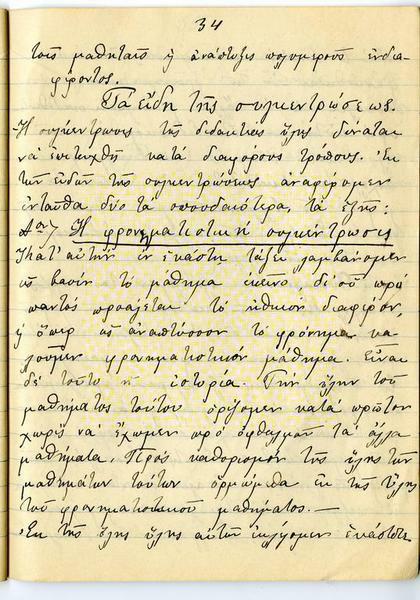 34
τοῖς μαθηταῖς ἡ ἀνάπτυξις πολυμεροῦς ἐνδια-
φέροντος.
Τὰ εἴδη τῆς συγκεντρώσεως.
Ἡ συγκέντρωσις τῆς διδακτέας ὕλης δύναται
νὰ ἐπιτευχθῇ κατὰ διαφόρους τρόπους. Ἐκ
τῶν εἰδῶν τῆς συγκεντρώσεως ἀναφέρομεν
ἐνταῦθα δύο τὰ σπουδαιότερα, τὰ ἑξῆς:
Αον) Ἡ φρονηματιστικὴ συγκέντρωσις
Κατ' αὐτὴν ἐν ἑκάστῃ τάξει λαμβάνομεν
ὡς βάσιν τὸ μάθημα ἐκεῖνο, δι' οὗ πρὸ
παντὸς προάγεται τὸ ἠθικὸν διαφέρον,
ἢ ὅπερ ὡς ἀναπτύσσον τὸ φρόνημα κα-
λοῦμεν φρονηματιστικὸν μάθημα. Εἶναι
δὲ τοῦτο ἡ ἱστορία. Τὴν ὕλην τοῦ
μαθήματος τούτου ὁρίζομεν κατὰ πρῶτον
χωρὶς νὰ ἔχωμεν πρὸ ὀφθαλμοῦ τὰ ἄλλα
μαθήματα. Πρὸς καθορισμὸν τῆς ὕλης τῶν
μαθημάτων τούτων ὁρμώμεθα ἐκ τῆς ὕλης
τοῦ φρονηματιστικοῦ μαθήματος.—
Ἐκ τῆς ὅλης ὕλης αὐτῶν ἐκλέγομεν ἑκάστοτε